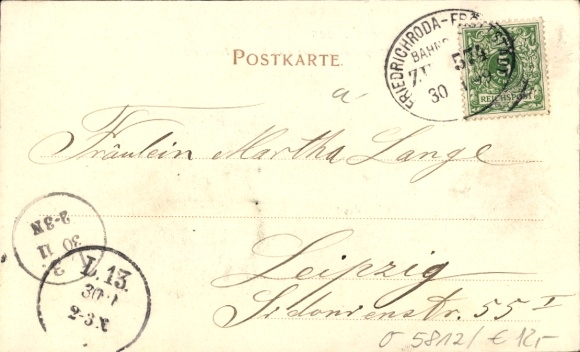 POSTKARTE.
FRIEDRICHRODA-
BAHN
ZUG 574
30
5
REICHSPOST
à
Fräulein Martha Lange
Leipzig
Sidonienstr. 55 I
30 11
2-3N
L. 13.
30
2-3N
5812/ € 12,-